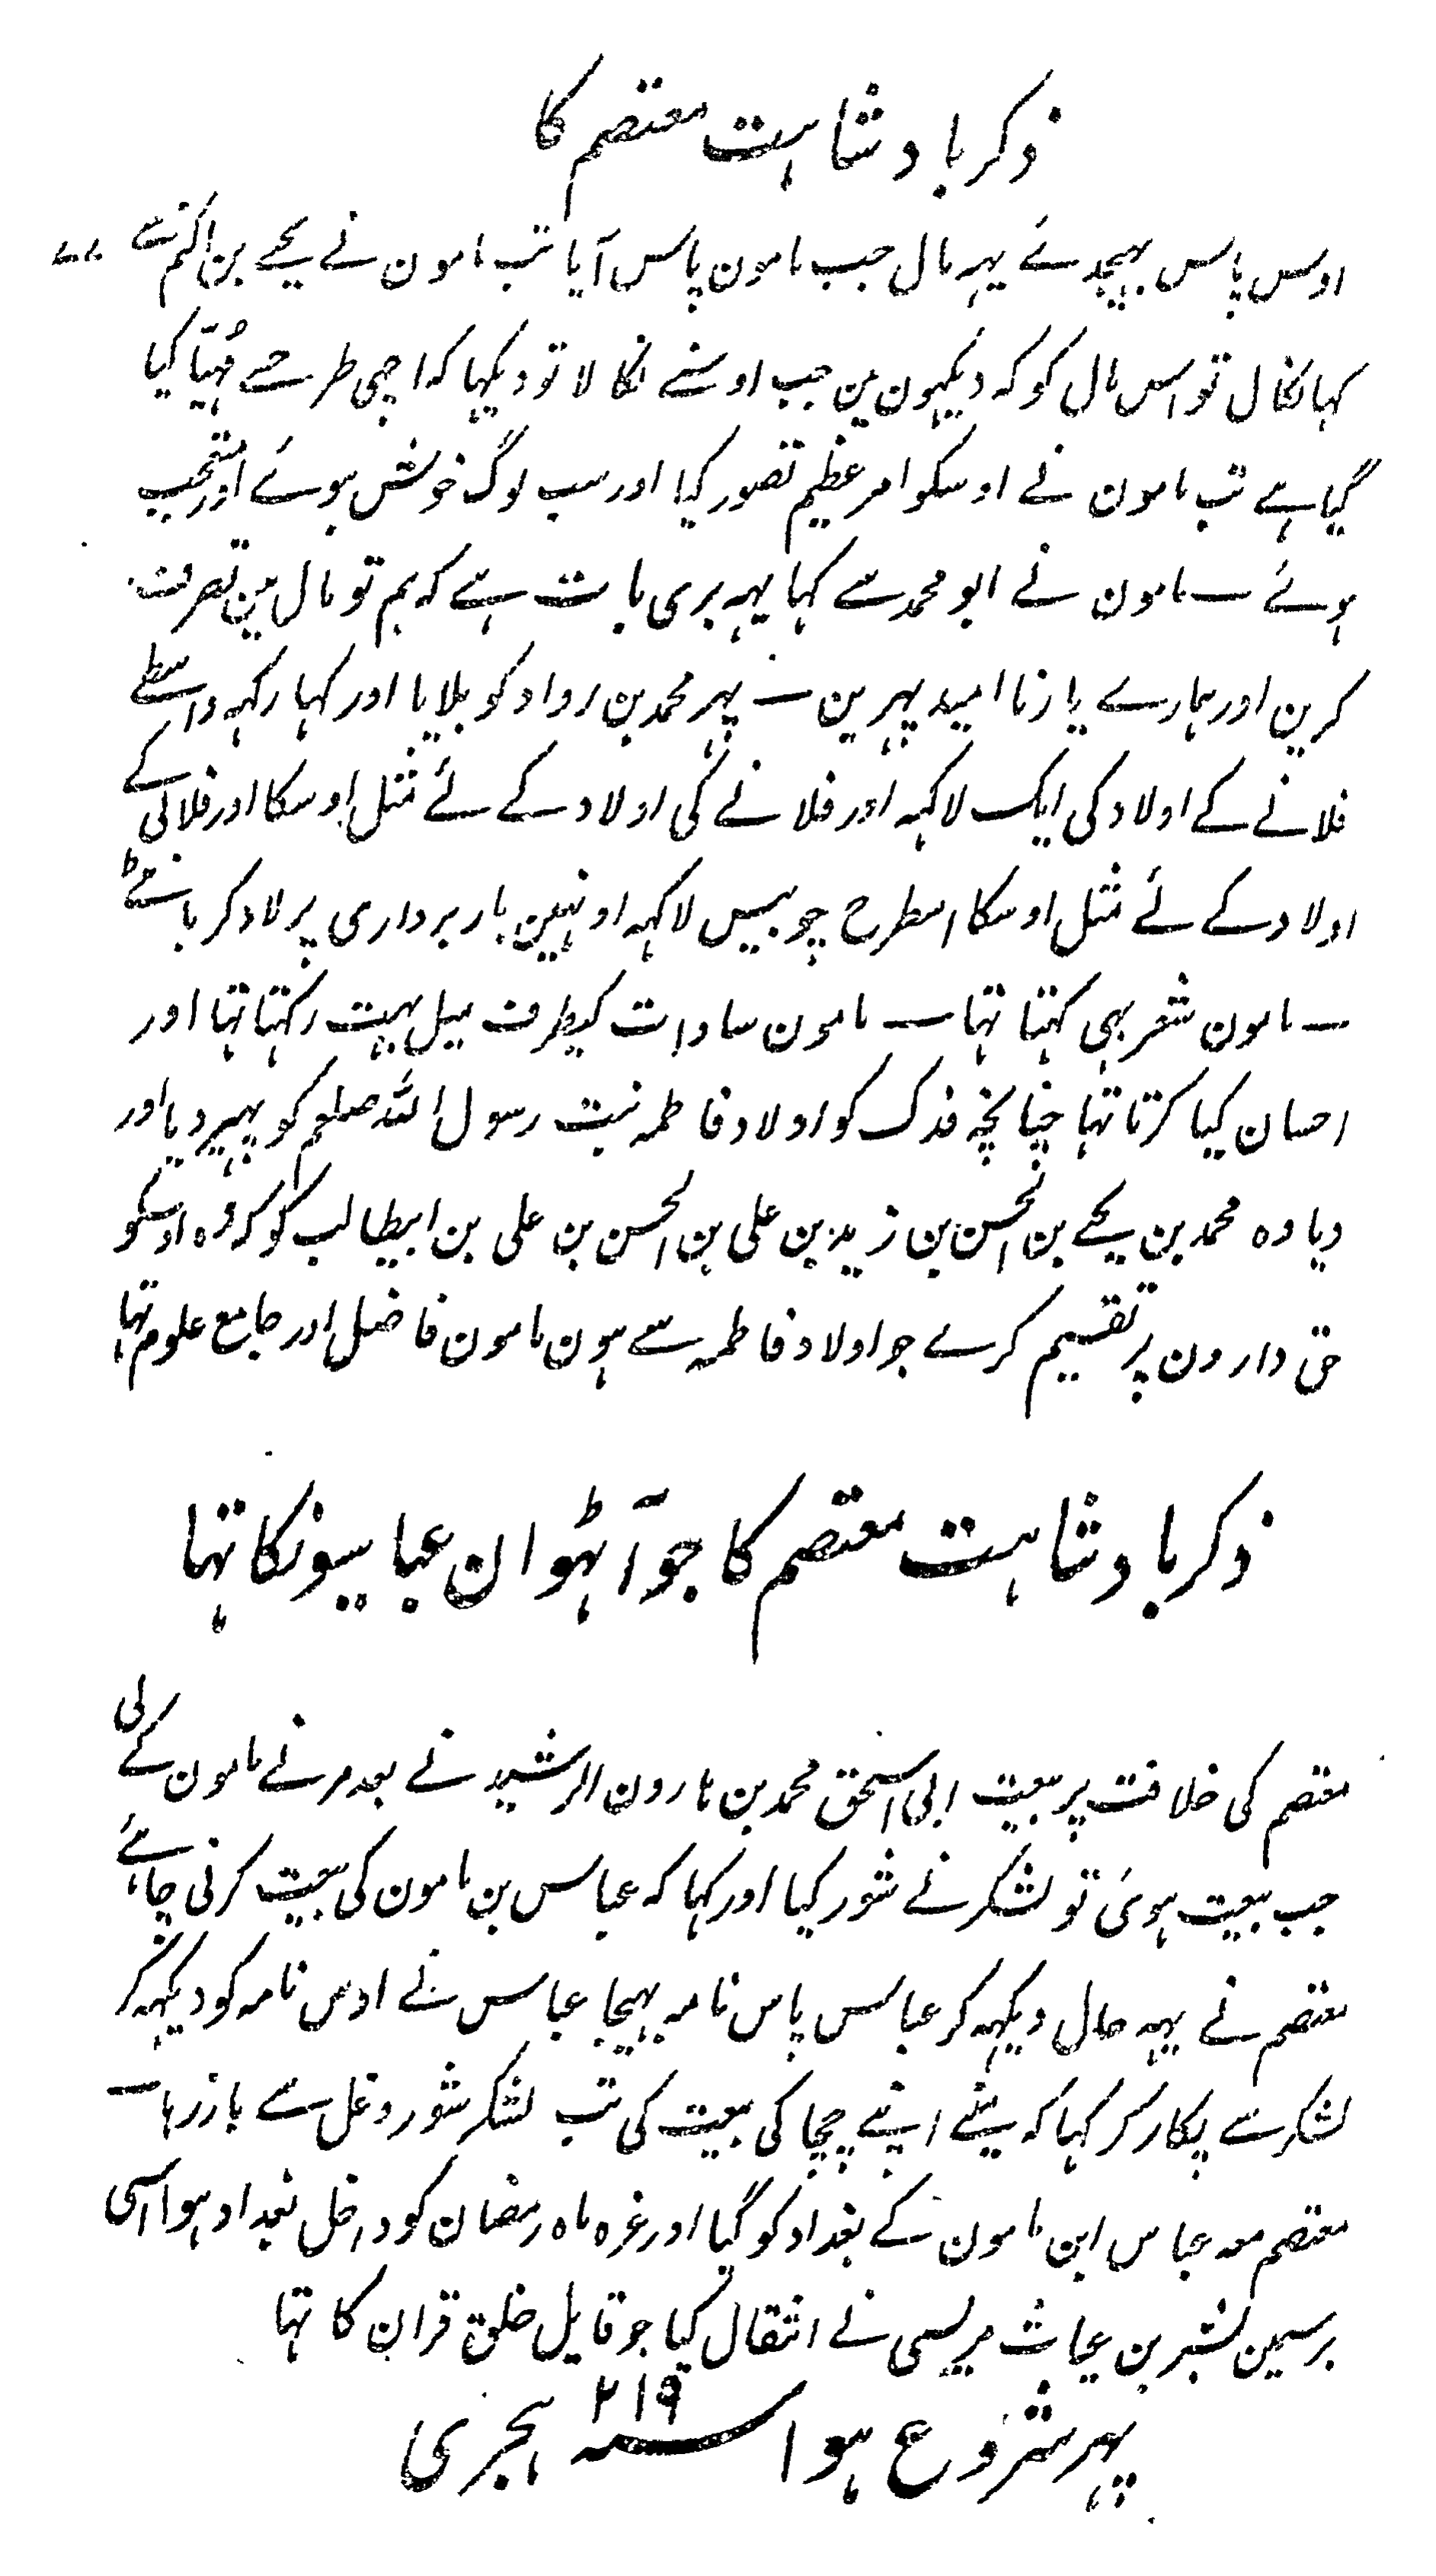 ذکر بادشاہت معتصم کا
اوس پاس بھیجدئے یہہ مال جب مامون پاس آیا تب مامون نے یحیے بن اکثم سے
کہا نکال تو اس مال کو کہ دیکہون مین جب اوسنے نکالا تو دیکہا کہ اچہی طرحسے مُہیّا کیا
گیا ہے تب مامون نے اوسکو امر عظیم تصور کیا اور سب لوگ خوش ہوئے اور متعجب
ہوئے ـــ مامون نے ابو محمد سے کہا یہہ بری بات ہے کہ ہم تو مال مین تصرف
کرین اور ہمارے یار نا امید پہرین ـــ پہر محمد بن رداد کو بلایا اور کہا رکہہ واسطے
فلانے کے اولاد کی ایک لاکہہ اور فلانے کی اولاد کے لئے مثل اوسکا اور فلانی کے
اولاد کے لئے مثل اوسکا اسطرح چوبیس لاکہہ اونہین باربرداری پر لاد کر بانٹے
ـــ مامون شعر بہی کہتا تہا ـــ مامون سادات کیطرف میل بہت رکہتا تہا اور
احسان کیا کرتا تہا چنانچہ فدک کو اولاد فاطمہ بنت رسول اللہ صلعم کو پہیر دیا اور
دیا وہ محمد بن یحیے بن الحسن بن زید بن علی بن الحسن بن علی بن ابیطالب کو کہ وہ اوسکو
حق دارون پر تقسیم کرے جو اولاد فاطمہ سے ہون مامون فاضل اور جامع علوم تہا
ذکر بادشاہت معتصم کا جو آٹہوان عباسیونکا تہا
معتصم کی خلافت پر بیعت ابی اسحق محمد بن ہارون الرشید نے بعد مرنے مامون کے لی
جب بیعت ہوئی تو لشکر نے شور کیا اور کہا کہ عباس بن مامون کی بیعت کرنی چاہئے
معتصم نے یہہ حال دیکہہ کر عباس پاس نامہ بہیجا عباس نے اوس نامہ کو دیکہہ کر
لشکر سے پکار کر کہا کہ مینے اپنے چچا کی بیعت کی تب لشکر شور و غل سے باز رہا ـــ
معتصم معہ عباس ابن مامون کے بغداد کو گیا اور غرہ ماہ رمضان کو داخل بغداد ہوا اسی
برسمین بشر بن عیاث مریسی نے انتقال کیا جو قایل خلق قران کا تہا
پہر شروع ہوا سنہ ۲۱۹ ہجری